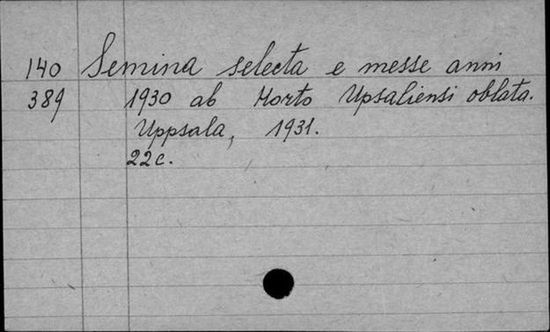 140 Semina selecta e messe anni
389 1930 ab Horto Upsaliensi oblata.
Uppsala, 1931.
22c.